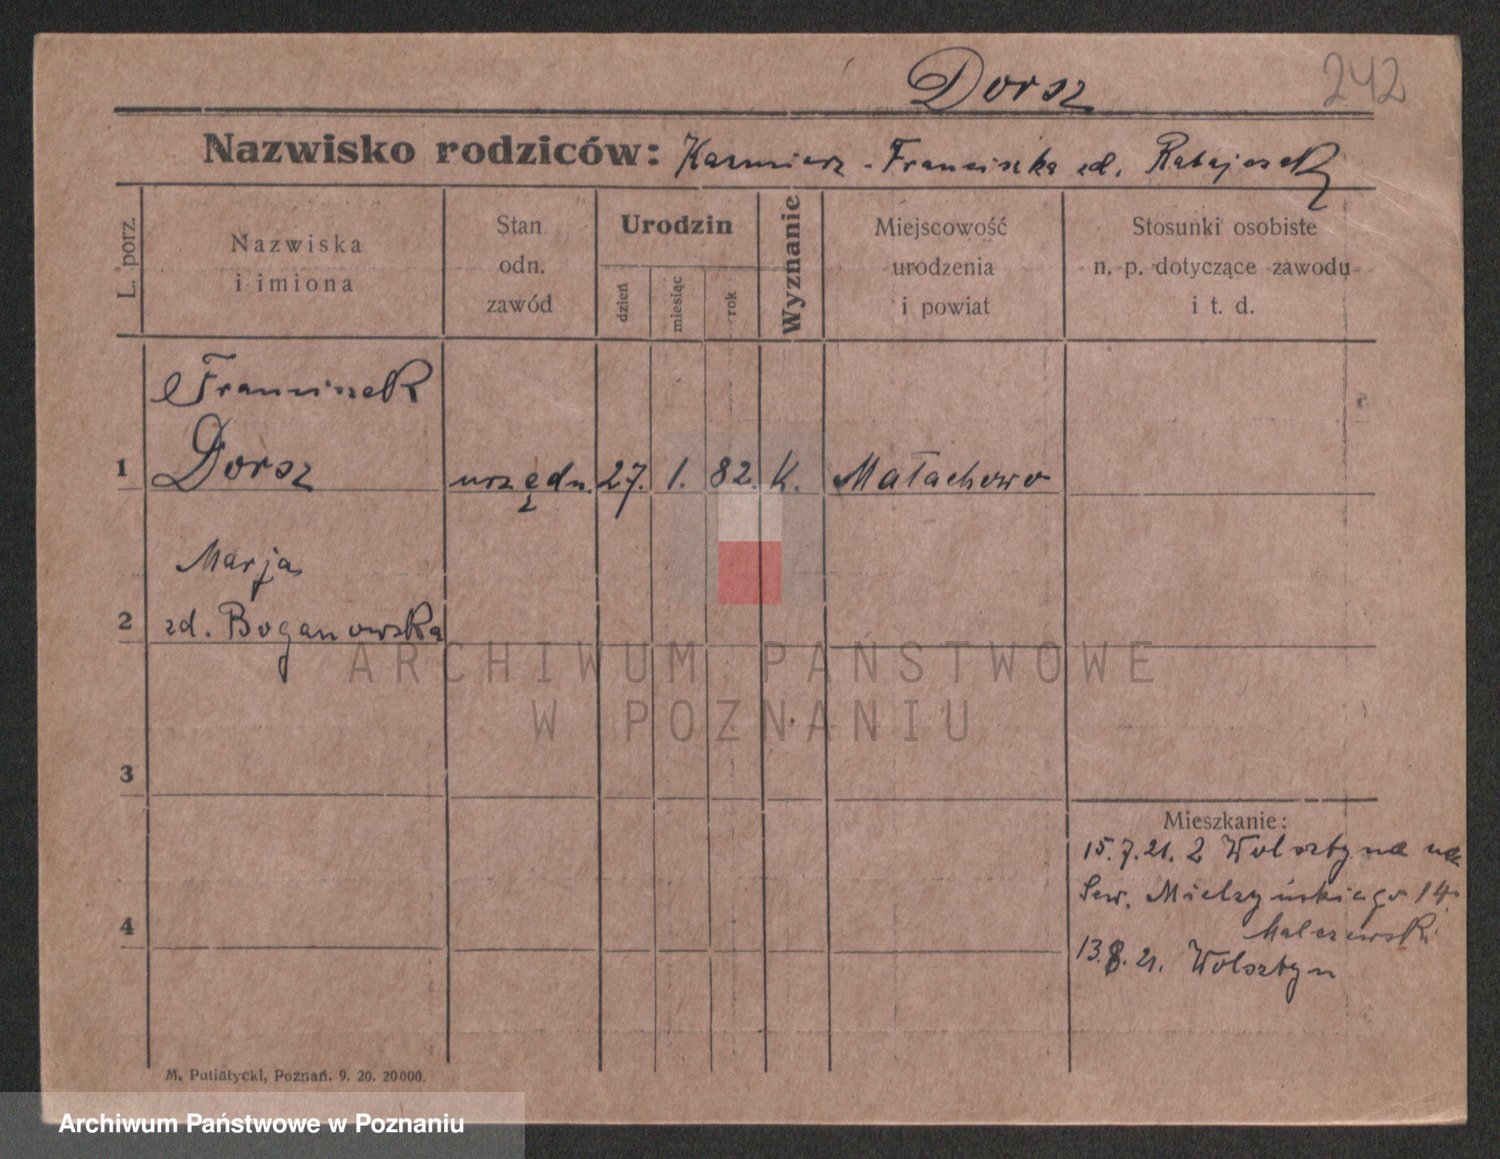 Dorsz
242
Nazwisko rodziców: Kazmierz - Franciszka zd. Ratajczak
L. porz.
Nazwiska
i imiona
Stan
odn.
zawód
Urodzin
dzień
miesiąc
rok
Wyznanie
Miejscowość
urodzenia
i powiat
Stosunki osobiste
n. p. dotyczące zawodu
i t. d.
Franciszek
1 Dorsz urzędn. 27. 1. 82. K. Małachowo
Marja
2 zd. Boganowska
ARCHIWUM PAŃSTWOWE
W POZNANIU
3
4
Mieszkanie:
15.7.21. z Wolsztyna na
Sew. Mielżyńskiego 14.
Malczewski
13.8.21. Wolsztyn
M. Putiatycki, Poznań. 9. 20. 20000.
Archiwum Państwowe w Poznaniu